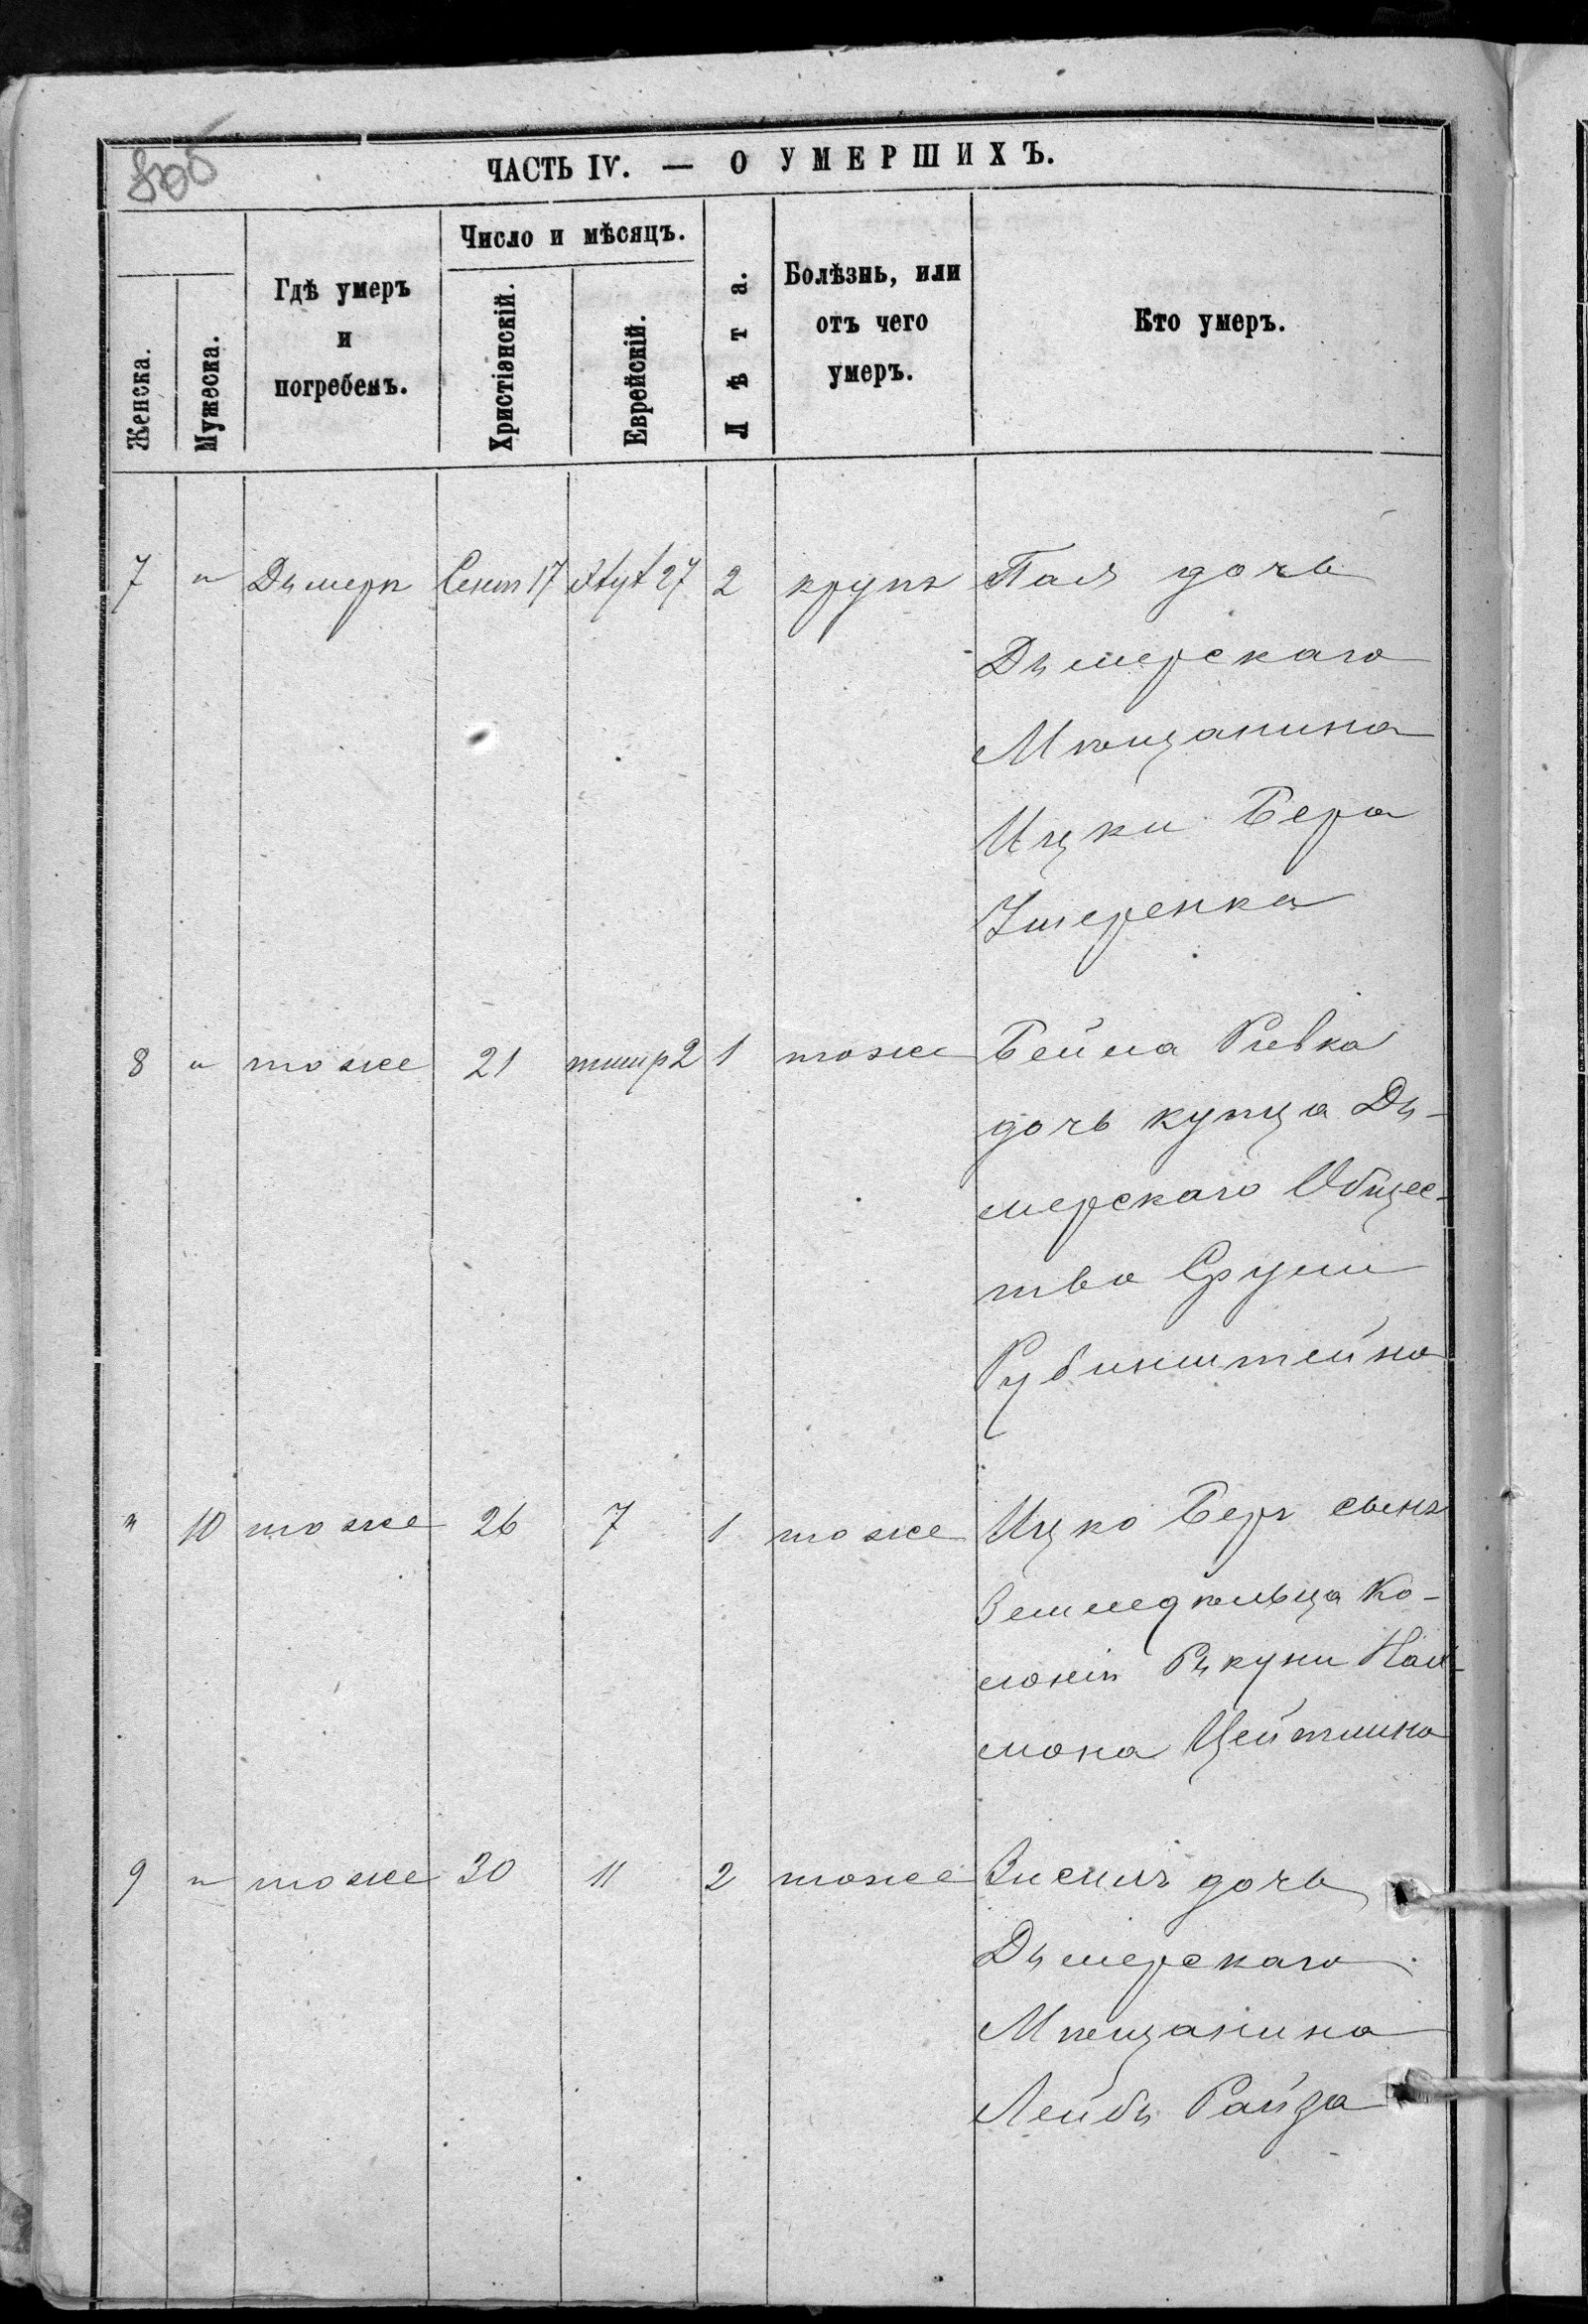 ЧАСТЬ IV. — О УМЕРШИХЪ.
Женска.
Мужеска.
Гдѣ умеръ
и
погребенъ.
Число и мѣсяцъ.
Христіянскій.
Еврейскій.
Лѣта.
Болѣзнь, или
отъ чего
умеръ.
Кто умеръ.
7 " Дымерѣ Сент 17 27 2 крупъ Пая дочь
Дымерскаго
Мѣщанина
Ицки Бера
Ушеренка
8 " тоже 21 тишр 2 1 тоже Бейла Ривка
дочь купца Ды-
мерскаго Общес-
тва Срули
Рубинштейна
" 10 тоже 26 7 1 тоже Ицко Беръ сынъ
Земледѣльца Ко-
лоніи Рыкуни
Цейтлина
9 " тоже 30 11 2 тоже дочь
Дымерскаго
Мѣщанина
Лейбы